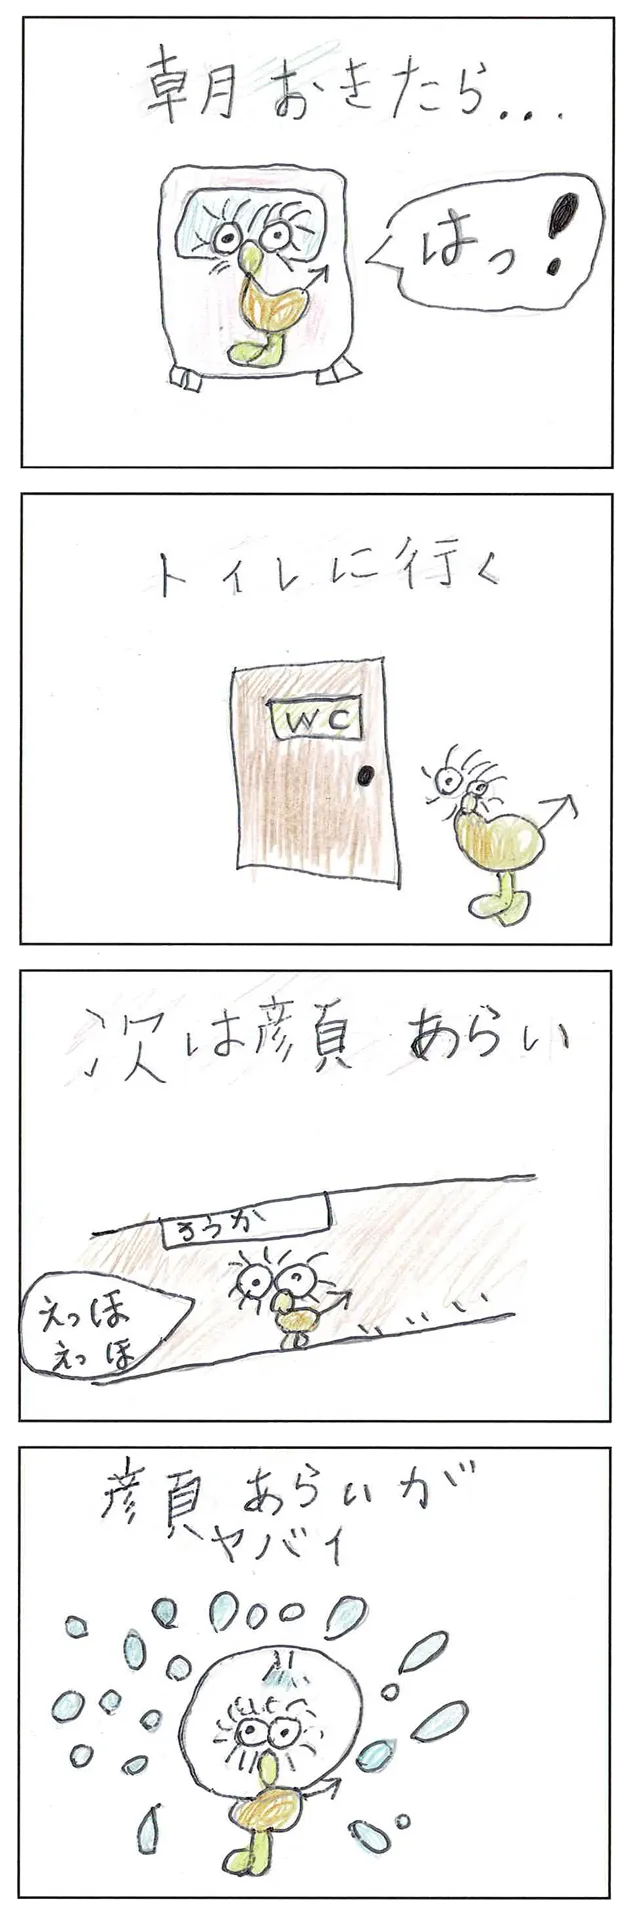 朝おきたら...
はっ!
トイレに行く
WC
次は顔あらい
ろうか
えっほ
えっほ
顔あらいが
ヤバイ